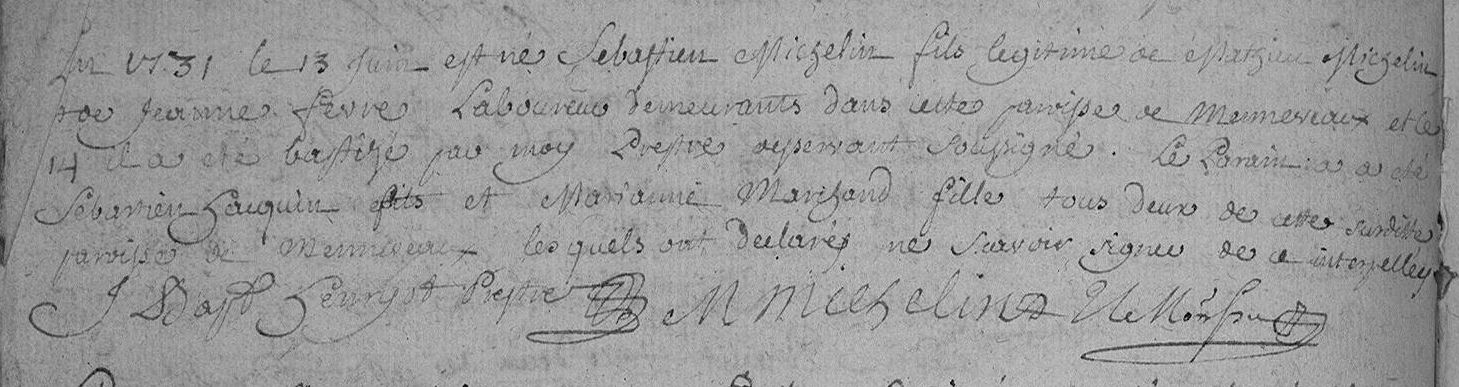 Lan 1731 le 13 juin est né Sebastien Michelin fils legitime de Mathieu Michelin
& de Jeanne fevre Laboureur demeurants dans cette paroisse de Menneveaux et le
14 il a eté bastizé par moy Prestre desservant soussigné. Le Parain a eté
Sebastien Jacquin fils et Marianne Marchand fille tous deux de cette susditte
paroisse de Menneveaux lesquels ont declarés ne scavoir signer de ce interpelley
J Prestre M Michelin